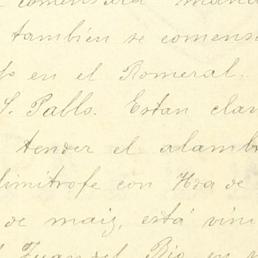 comensará manda
también se comens
en el Romeral.
S. Pablo. Estan clav
tender el alamb
limitrofe con Hda de
de maiz, está vini
Juan del Rio en